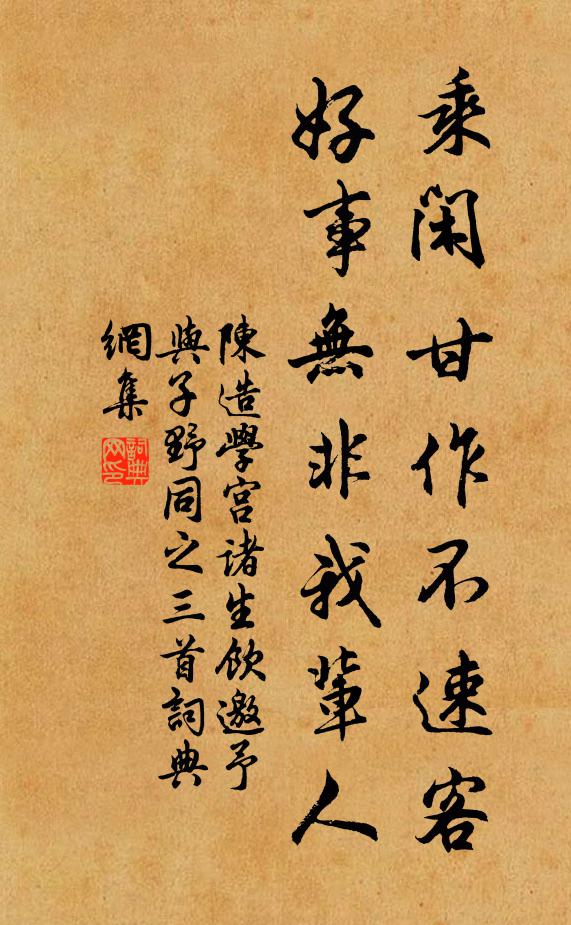 乘閑甘作不速客
好事無非我輩人
陳造學宮諸生飲邀予
與子野同之三首詞典
網集
詞典
网印